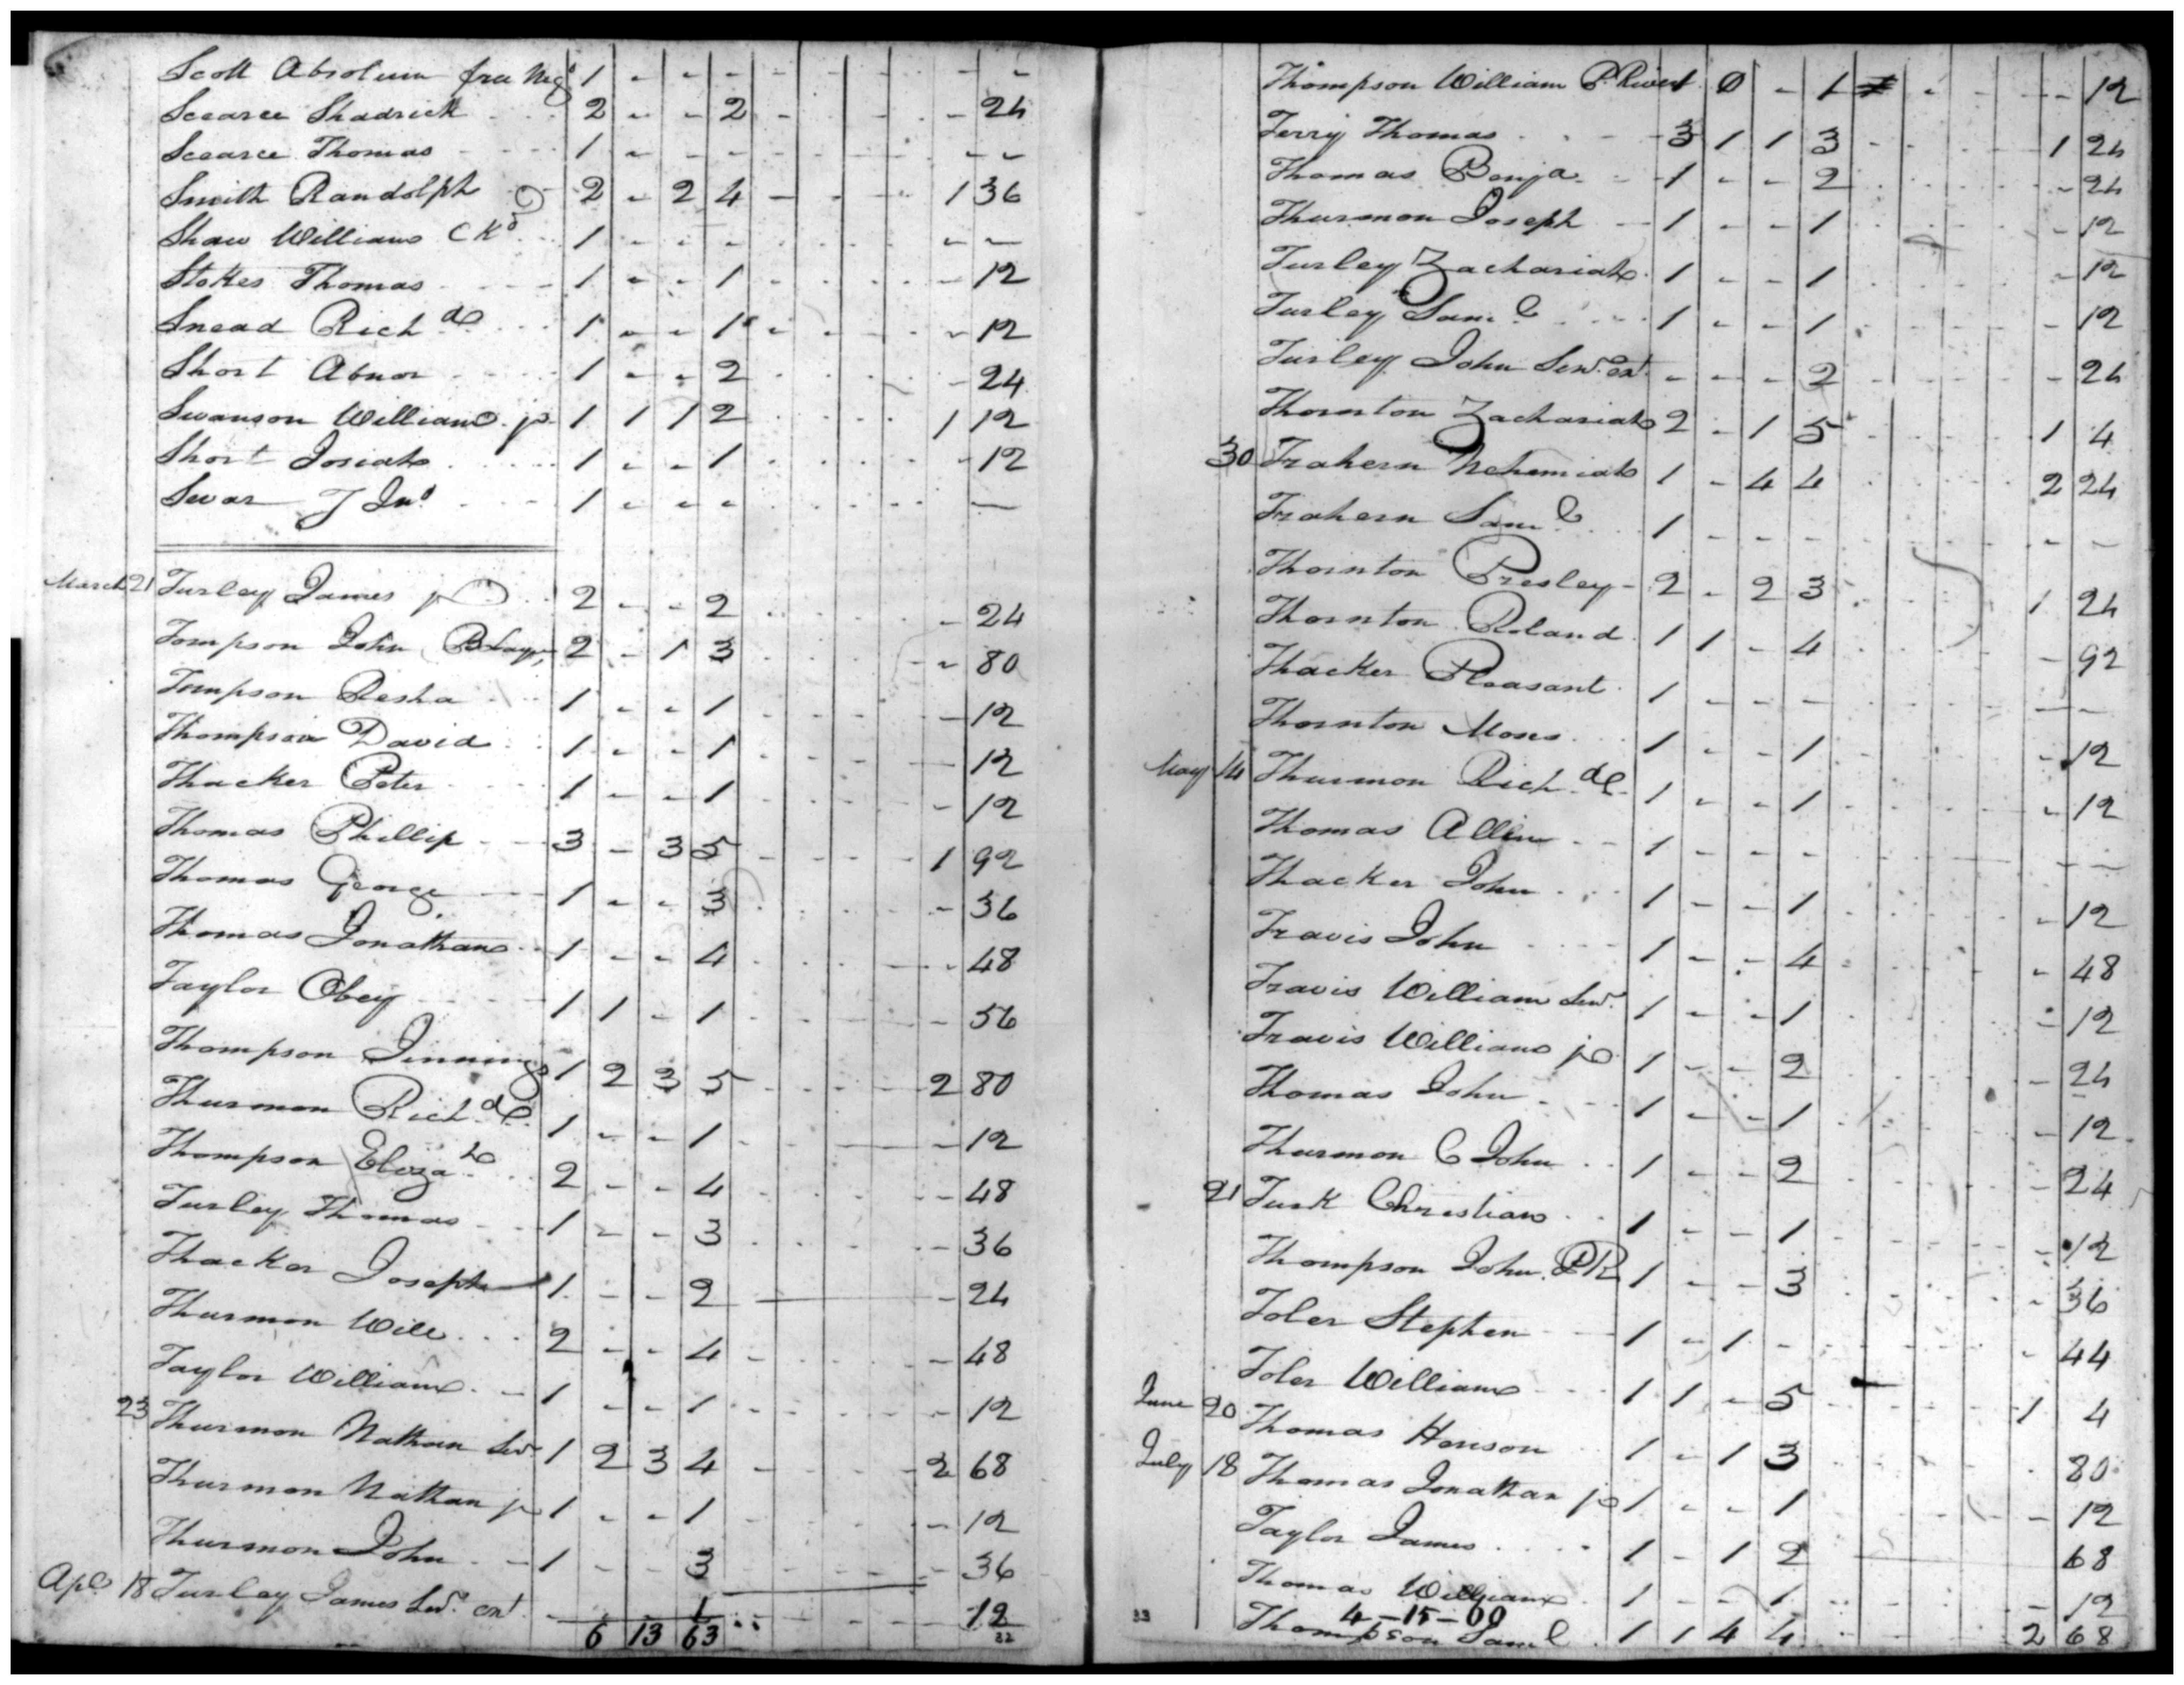 Scott Absolum free Neg° 1 - - - - -
Scearce Shadrick 2 - - 2 - - 24
Scearce Thomas 1 - - - - -
Smith Randolph 2 - 2 4 - 1 36
Shaw William CKd 1 - - - - -
Stokes Thomas 1 - - 1 - 12
Snead Richd 1 - - 1 - 12
Short Abner 1 - - 2 - 24
Swanson William jr 1 1 1 2 1 12
Short Josiah 1 - - 1 - 12
Swar J Jno 1 - - - —
March 21 Turley James jr 2 - - 2 - 24
Tompson John 2 - 1 3 - 80
Tompson Pesha 1 - - 1 - 12
Thompson David 1 - - 1 - 12
Thacker Peter 1 - - 1 - 12
Thomas Phillip 3 - 3 5 - 1 92
Thomas George 1 - - 3 - 36
Thomas Jonathan 1 - - 4 - 48
Taylor Obey 1 1 - 1 - 56
Thompson Jennings 1 2 3 5 - 2 80
Thurmon Richd 1 - - 1 - 12
Thompson Elizah 2 - - 4 - 48
Turley Thomas 1 - - 3 - 36
Thacker Joseph 1 - - 2 - 24
Thurmon Will 2 - - 4 - 48
Taylor William 1 - - 1 - 12
23 Thurmon Nathan Senr 1 2 3 4 - 2 68
Thurmon Nathan jr 1 - - 1 - 12
Thurmon John 1 - - 3 - 36
Apl 18 Turley James Senr ext - 1 - 12
6 13 63 32
Thompson William P. River 0 - 1 - - 12
Terry Thomas 3 1 1 3 1 24
Thomas Benja 1 - - 2 - 24
Thurmon Joseph 1 - - 1 - 12
Turley Zachariah 1 - - 1 - 12
Turley Saml 1 - - 1 - 12
Turley John Senr ext - - - 2 - 24
Thornton Zachariah 2 - 1 5 1 4
30 Trahern Nehemiah 1 - 4 4 2 24
Trahern Saml 1 - - - - -
Thornton Presley 2 - 2 3 1 24
Thornton Roland 1 1 - 4 - 92
Thacker Pleasant 1 - - - - -
Thornton Moses 1 - - 1 - 12
May 14 Thurmon Richd 1 - - 1 - 12
Thomas Allin 1 - - - - -
Thacker John 1 - - 1 - 12
Travis John 1 - - 4 - 48
Travis William Senr 1 - - 1 - 12
Travis William jr 1 - - 2 - 24
Thomas John 1 - - 1 - 12
Thurmon C John 1 - - 2 - 24
21 Turk Christian 1 - - 1 - 12
Thompson John. PR 1 - - 3 - 36
Toler Stephen 1 - 1 - - 44
Toler William 1 1 - 5 1 4
June 20 Thomas Henson 1 - 1 3 80
July 18 Thomas Jonathan jr 1 - - 1 - 12
Taylor James 1 - 1 2 68
Thomas William 1 - - 1 - 12
4-15-60
33 Thompson Saml 1 1 4 4 2 68